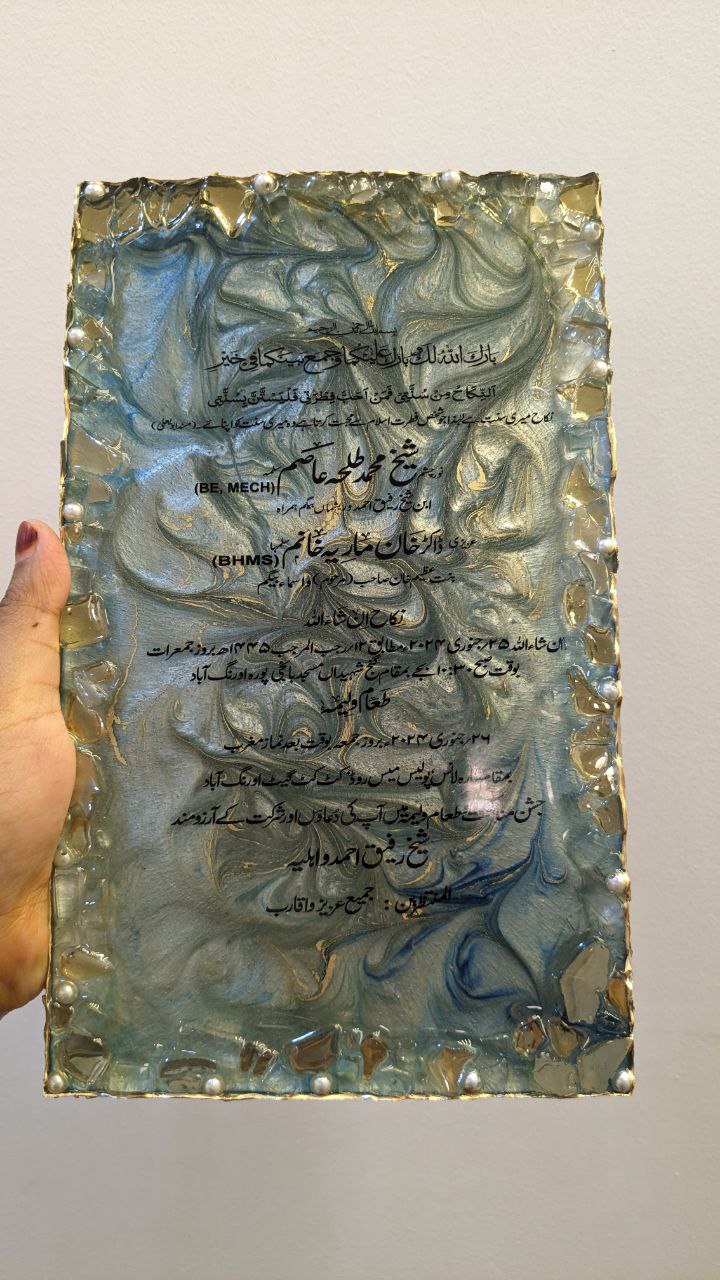 بسم الله الرحمن الرحيم
بَارَكَ اللهُ لَكَ وَبَارَكَ عَلَيْكُمَا وَجَمَعَ بَيْنَكُمَا فِي خَيْرٍ
اَلنِّكَاحُ مِنْ سُنَّتِيْ فَمَنْ اَحَبَّ فِطْرَتِيْ فَلْيَسْتَنَّ بِسُنَّتِيْ
نکاح میری سنت ہے لہٰذا جو شخص فطرت اسلام سے محبت کرتا ہے وہ میری سنت کو اپنائے
شیخ محمد طلحہ عاصم سلمہ (BE, MECH)
ابن شیخ رفیق احمد و بیگم ہمراہ
عزیزی ڈاکٹر خان ماریہ خانم سلمہا (BHMS)
بنت عظیم خان صاحب (مرحوم) و اسماء بیگم
نکاح ان شاء اللہ
ان شاء اللہ ۲۵؍جنوری ۲۰۲۴ء مطابق ۱۲؍رجب المرجب ۱۴۴۵ھ بروز جمعرات
بوقت صبح ۱۰:۳۰ بجے بمقام گنج شہیداں مسجد بائجی پورہ اورنگ آباد
طعام ولیمہ
۲۶؍جنوری ۲۰۲۴ء بروز جمعہ بوقت بعد نماز مغرب
لانس پولیس میس روڈ کٹ کٹ گیٹ اورنگ آباد
جشن طعام ولیمہ میں آپ کی دعاؤں اور شرکت کے آرزومند
شیخ رفیق احمد و اہلیہ
المنتظرین : جمیع عزیز و اقارب